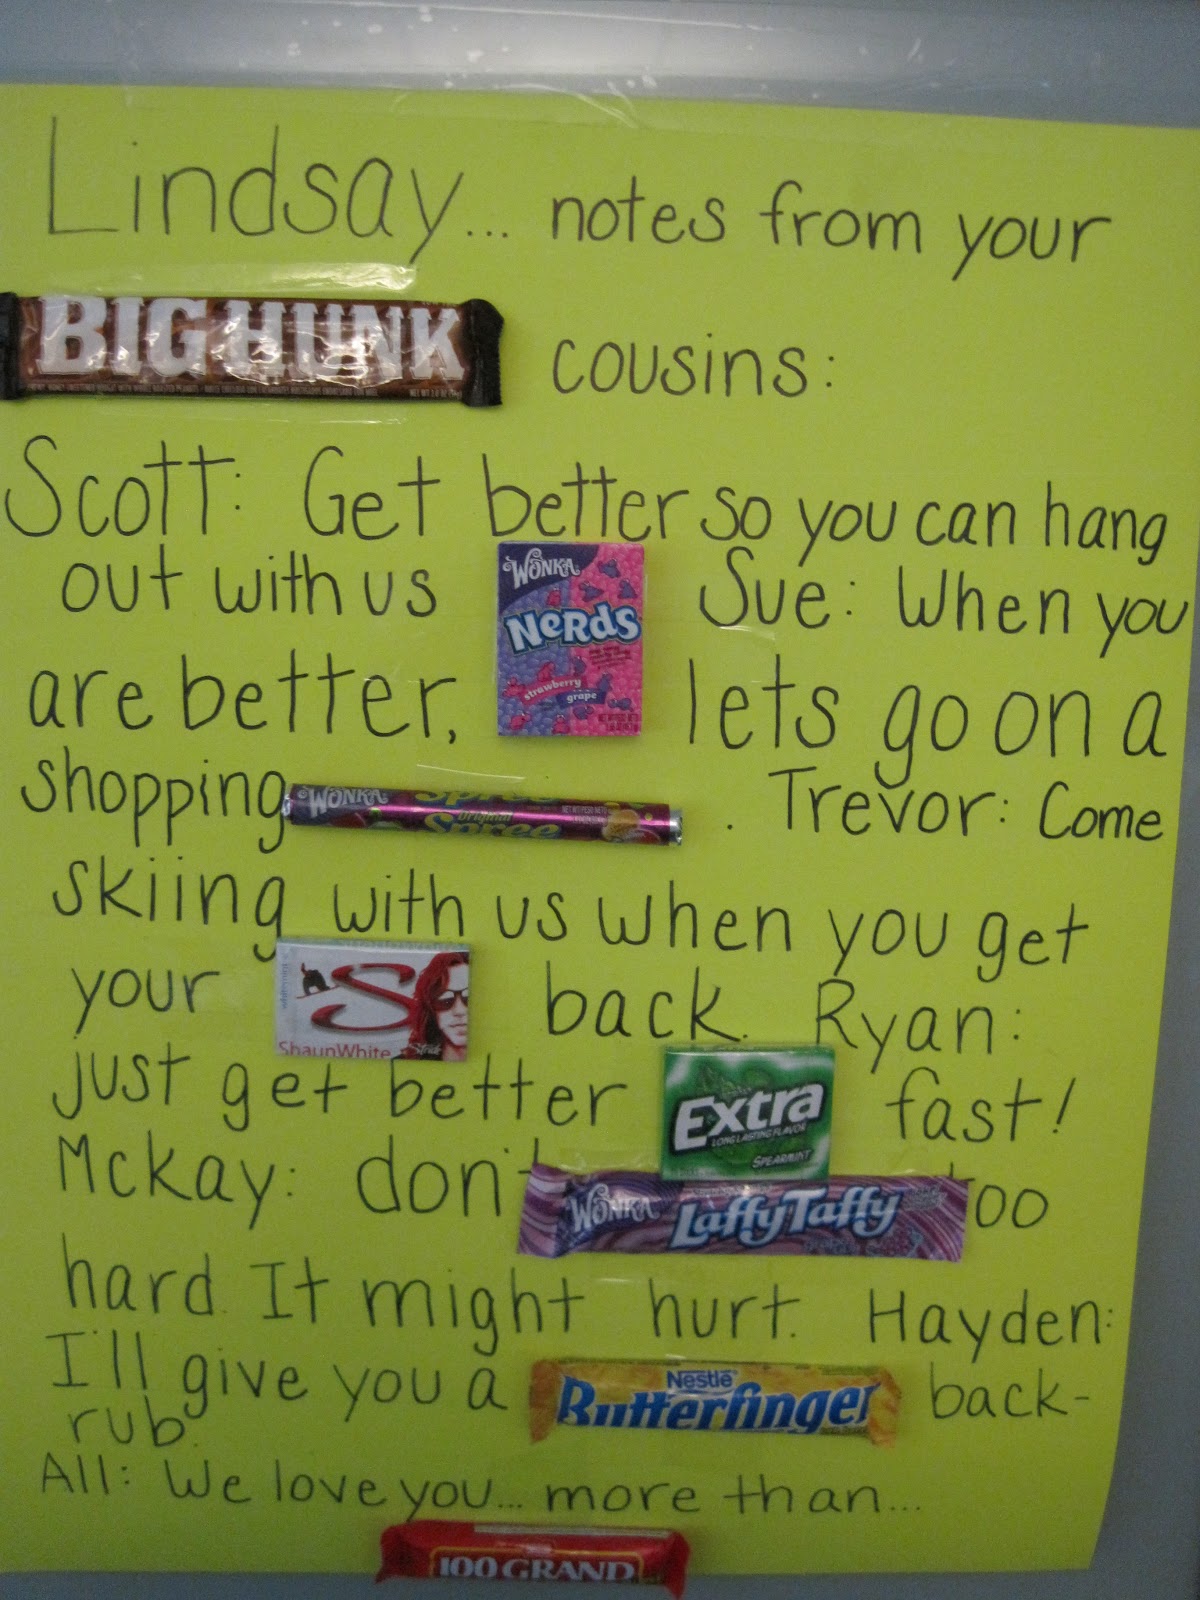 Lindsay... notes from your
BIG HUNK cousins:
Scott: Get better so you can hang
out with us WONKA NERDS strawberry grape Sue: When you
are better, lets go on a
shopping WONKA Original Spree . Trevor: Come
skiing with us when you get
your S ShaunWhite Stride back. Ryan:
just get better Extra LONG LASTING FLAVOR SPEARMINT fast!
McKay: don't WONKA Laffy Taffy too
hard. It might hurt. Hayden:
I'll give you a Nestlé Butterfinger back-
rub.
All: We love you... more than...
100 GRAND